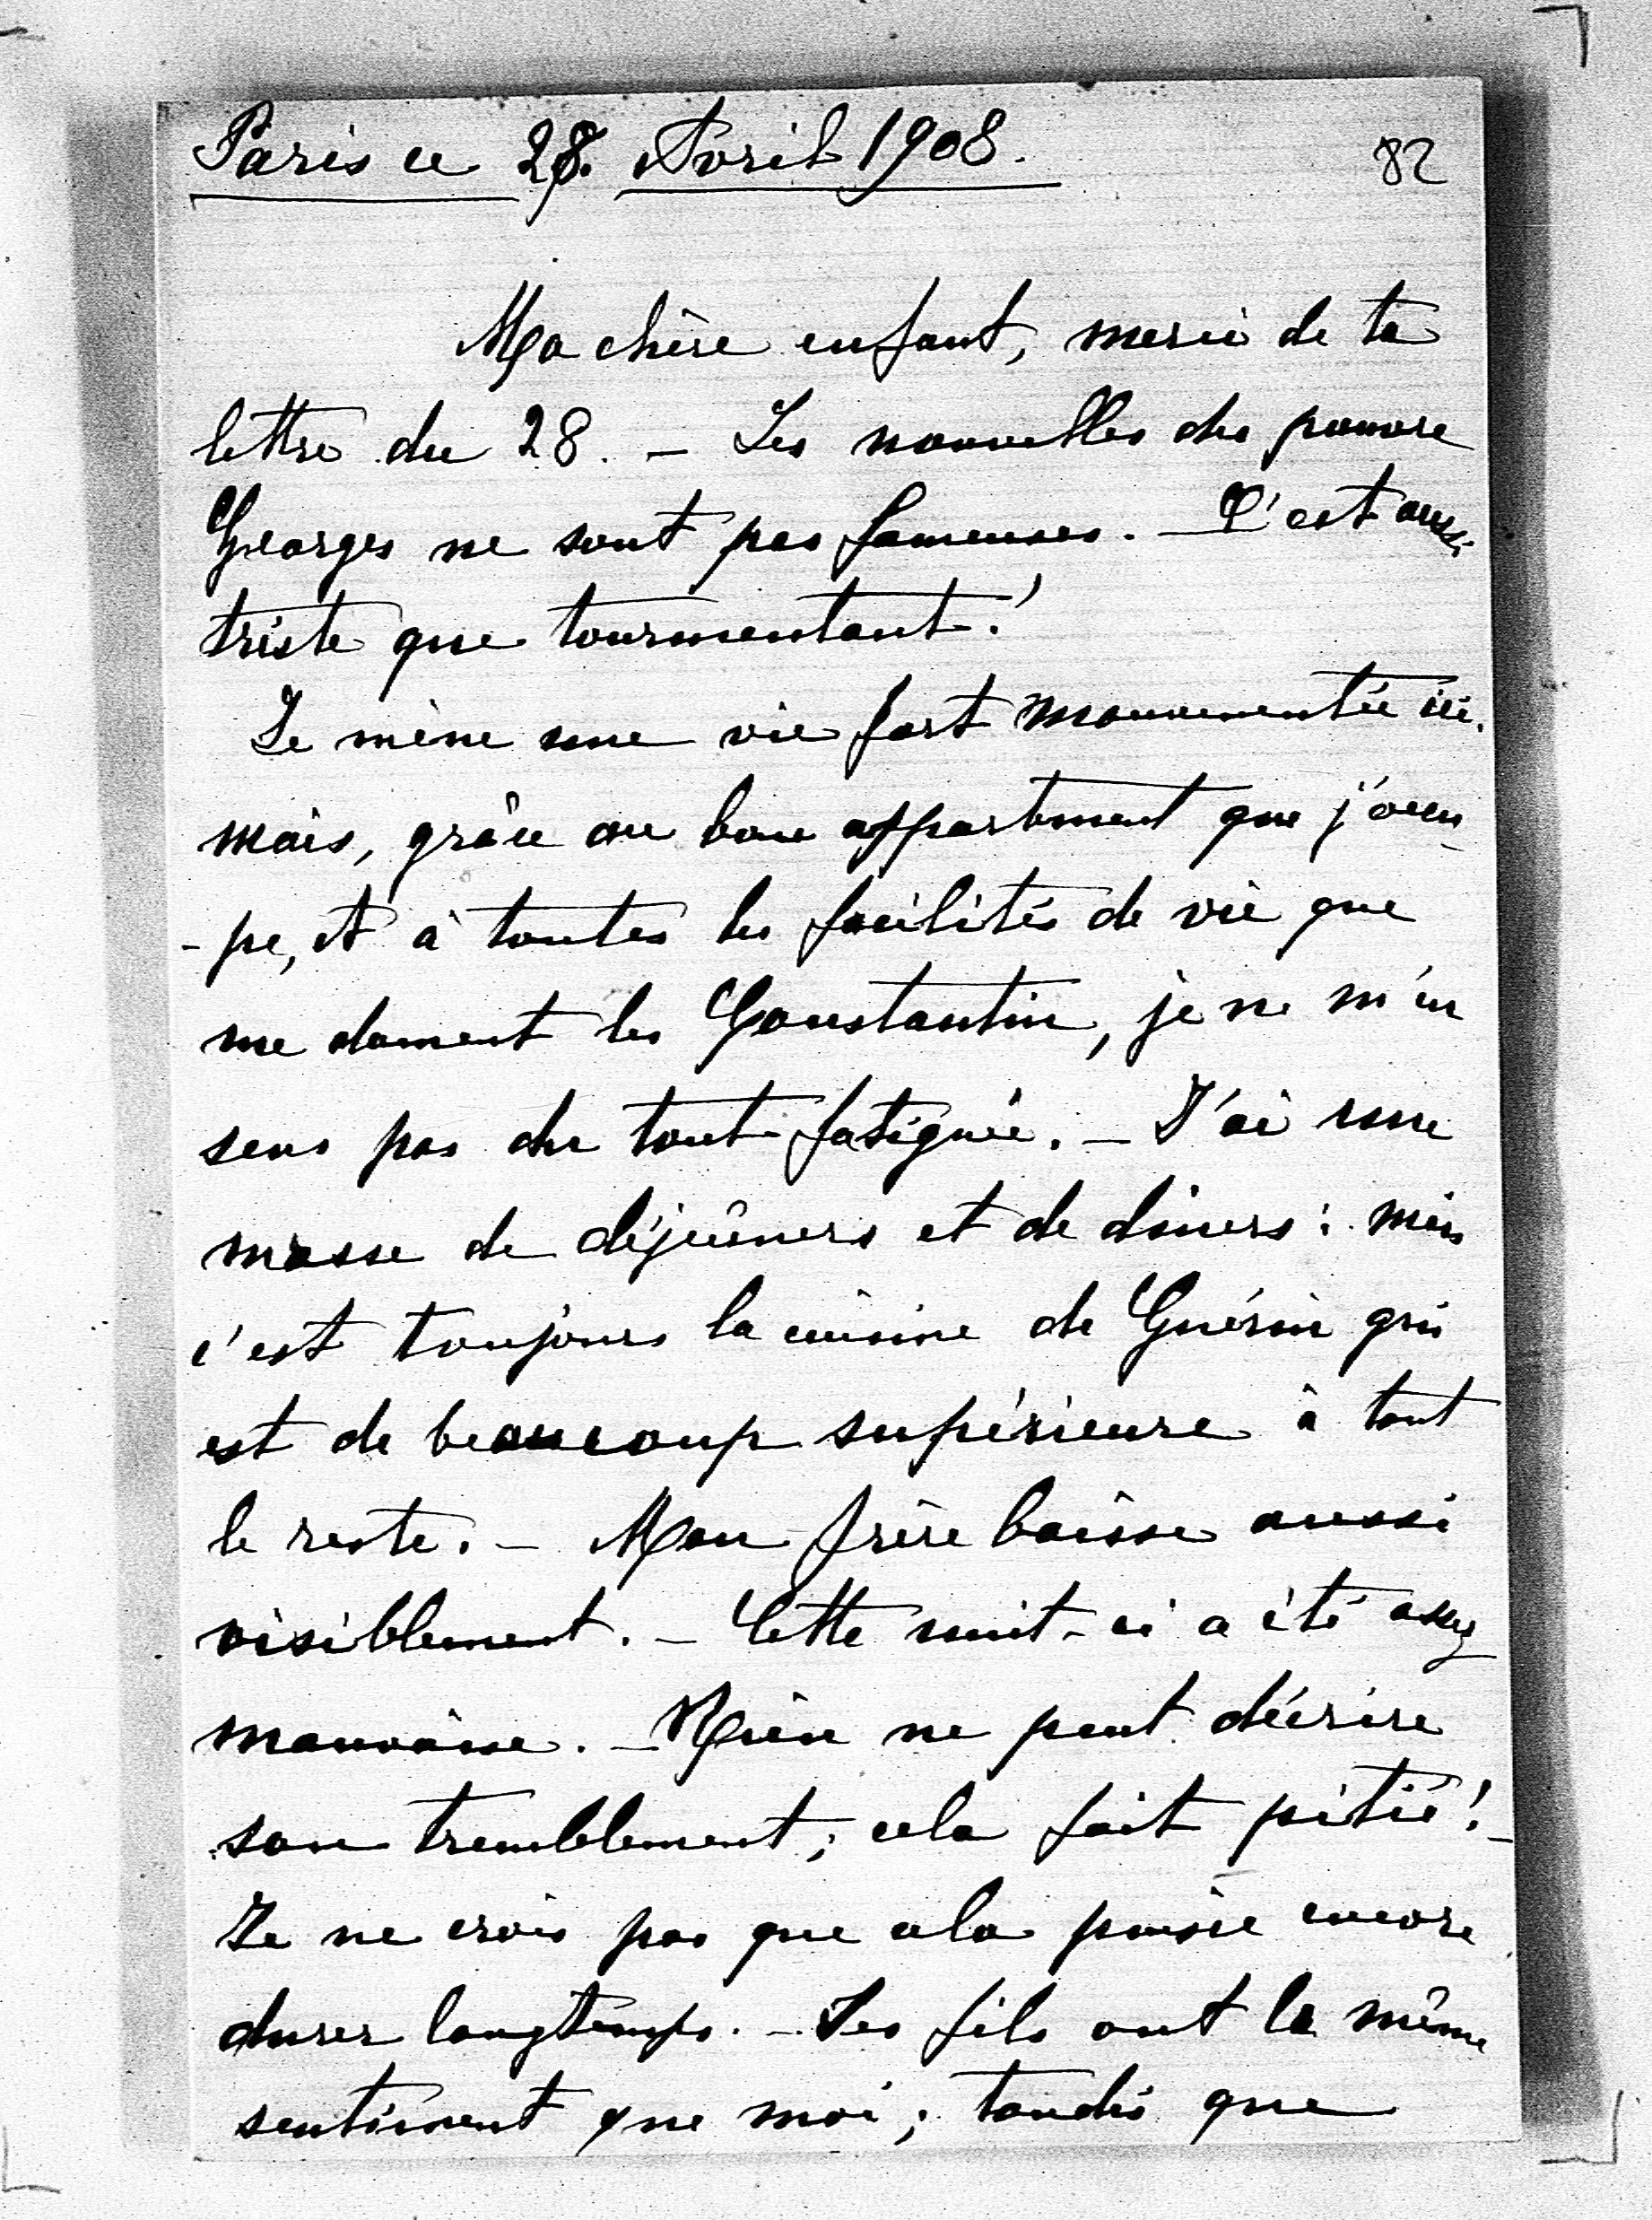 Paris ce 28. Avril 1908.
82
Ma chère enfant, merci de ta
lettre du 28. – Les nouvelles du pauvre
Georges ne sont pas fameuses. – C'est aussi
triste que tourmentant!
Je mène une vie fort mouvementée ici.
mais, grâce au bon appartement que j'occu-
-pe, et à toutes les facilités de vie que
me donnent les Constantin, je ne m'en
sens pas du tout fatiguée. – J'ai une
masse de déjeûners et de dîners: mais
c'est toujours la cuisine de Guérin qui
est de beaucoup supérieure à tout
le reste. – Mon frère baisse aussi
visiblement. – Cette nuit-ci a été assez
mauvaise. – Rien ne peut décrire
son tremblement; cela fait pitié! –
Je ne crois pas que cela puisse encore
durer longtemps. – Ses fils ont le même
sentiment que moi; tandis que